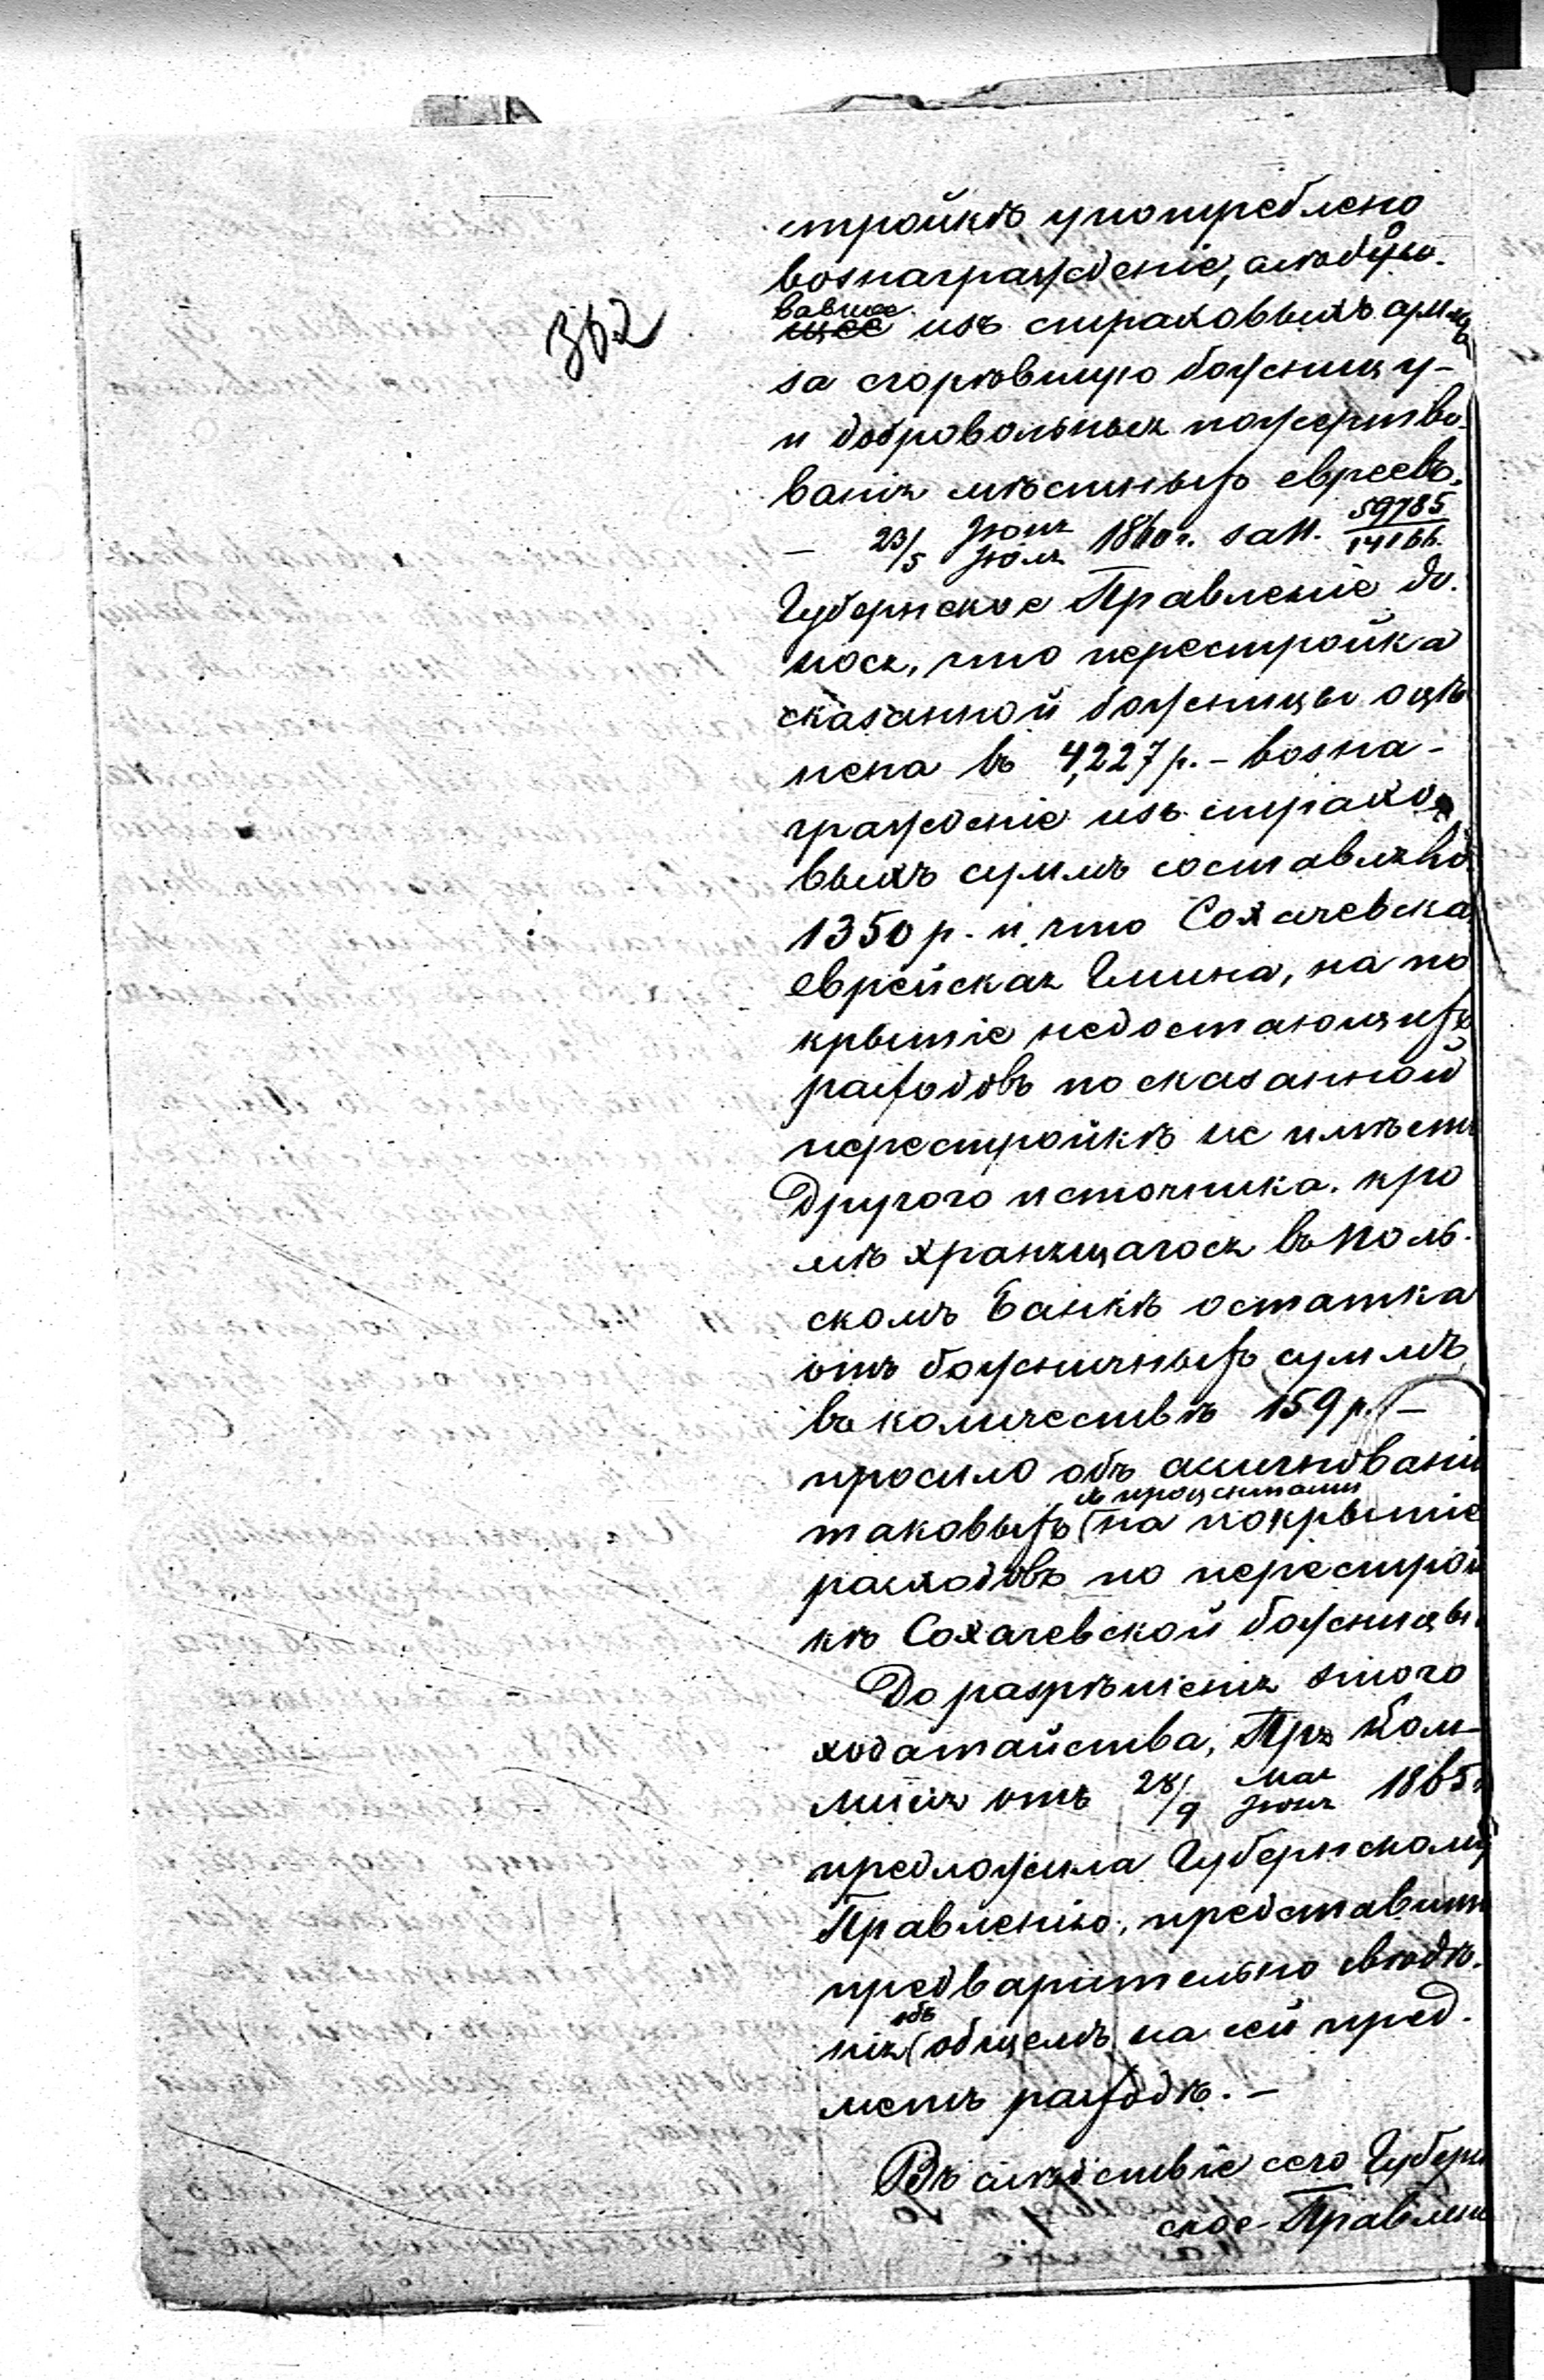 362
стройкѣ употреблено
вознагражденіе, слѣдую-
вавшее
щее изъ страховыхъ суммъ
за сгорѣвшую божницу -
и добровольныя пожертво-
ванія мѣстныхъ евреевъ.
— 23/5 Іюня/Іюля 1860 г. за N. 59785/14166
Губернское Правленіе до-
нося, что перестройка
сказанной божницы оцѣ
нена въ 4,227 р. - возна-
гражденіе изъ страхо-
выхъ суммъ составляло
1350 р. и что Сохачевска
еврейская Гмина, на по
крытіе недостающихъ
расходовъ по сказанной
перестройкѣ не имѣетъ
другого источника. кро
мѣ хранящагося въ Поль-
скомъ Банкѣ остатка
отъ божничныхъ суммъ
въ количествѣ 159 р. -
просило объ ассигнованіи
съ процентами
таковыхъ (на покрытіе
расходовъ по перестрой
кѣ Сохачевской божницы.
До разрѣшенія этого
ходатайства, Пр. Ком-
мисія отъ 28/9 Мая/Іюня 1865
предложила Губернскому
Правленію, представить
предварительно свѣдѣ-
объ
нія (общемъ на сей пред-
метъ расходѣ. -
Въ слѣдствіе сего Губерн
ское Правлені